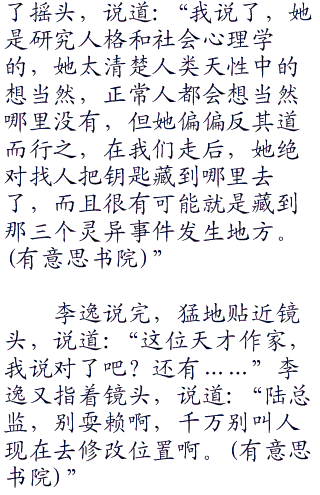 了摇头，说道：“我说了，她
是研究人格和社会心理学
的，她太清楚人类天性中的
想当然，正常人都会想当然
哪里没有，但她偏偏反其道
而行之，在我们走后，她绝
对找人把钥匙藏到哪里去
了，而且很有可能就是藏到
那三个灵异事件发生地方。
(有意思书院)”
李逸说完，猛地贴近镜
头，说道：“这位天才作家，
我说对了吧？还有……”李
逸又指着镜头，说道：“陆总
监，别耍赖啊，千万别叫人
现在去修改位置啊。(有意思
书院)”